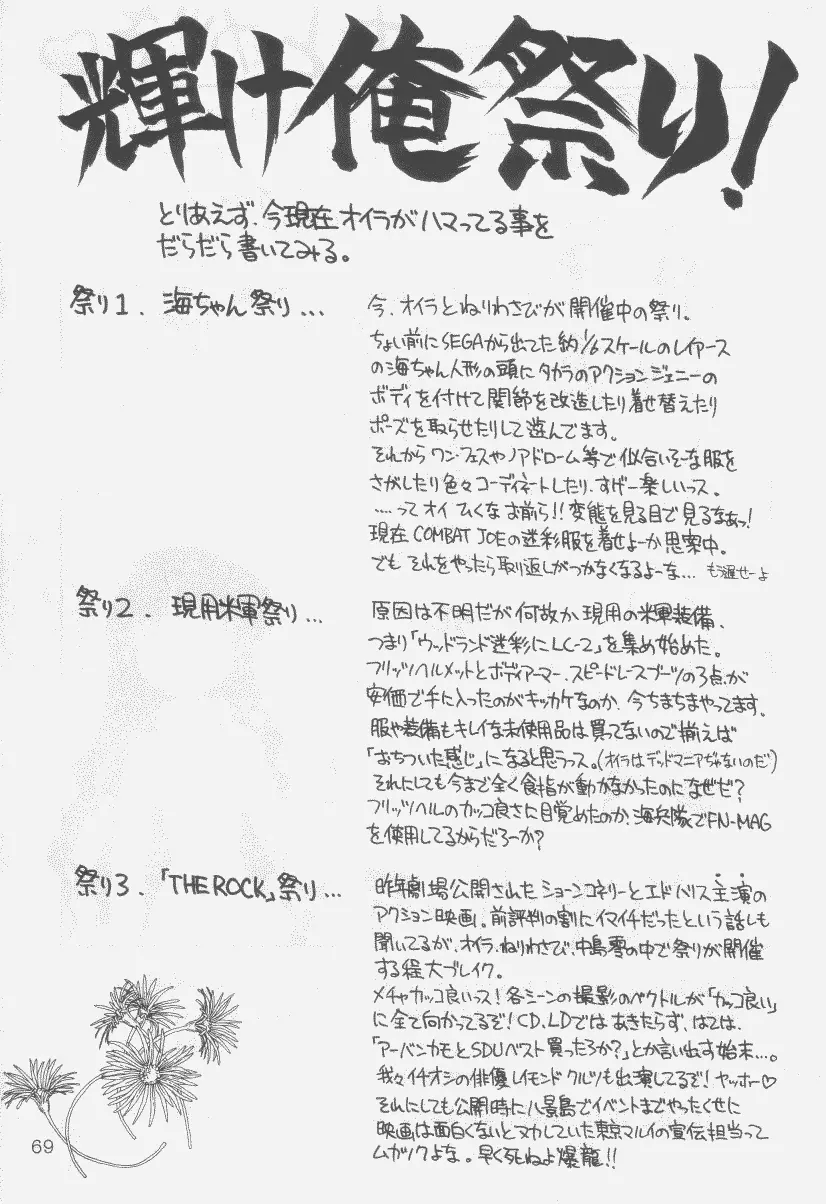 輝け俺祭り!
とりあえず、今現在オイラがハマってる事を
だらだら書いてみる。
祭り1. 海ちゃん祭り...
今、オイラとねりわさびが開催中の祭り。
ちょい前にSEGAから出てた約1/6スケールのレイアース
の海ちゃん人形の頭にタカラのアクションジェニーの
ボディを付けて関節を改造したり着せ替えたり
ポーズを取らせたりして遊んでます。
それからワンフェスやノアドローム等で似合いそーな服を
さがしたり色々コーディネートしたり、すげー楽しいっス。
....ってオイ ひくな お前ら!!変態を見る目で見るなぁっ!
現在COMBAT JOEの迷彩服を着せよーか思案中。
でも それをやったら取り返しがつかなくなるよーな... もう遅せーよ
祭り2. 現用米軍祭り...
原因は不明だが何故か、現用の米軍装備、
つまり「ウッドランド迷彩にLC-2」を集め始めた。
フリッツヘルメットとボディアーマー、スピードレースブーツの3点が
安価で手に入ったのがキッカケなのか、今ちまちまやってます。
服や装備もキレイな未使用品は買ってないので揃えば
「おちついた感じ」になると思うっス。(オイラはデッドマニアぢゃないのだ)
それにしても今まで全く食指が動かなかったのになぜだ?
フリッツヘルのカッコ良さに目覚めたのか、海兵隊でFN-MAG
を使用してるからだろーか?
祭り3. 「THE ROCK」祭り...
昨年劇場公開されたショーンコネリーとエドハリス主演の
アクション映画。前評判の割にイマイチだったという話しも
聞いてるが、オイラ、ねりわさび、中島零の中で祭りが開催
する程大ブレイク。
メチャカッコ良いっス!各シーンの撮影のベクトルが「カッコ良い」
に全て向かってるぞ!CD、LDではあきたらず、はては、
「アーバンカモとSDUベスト買ったろか?」とか言い出す始末...。
我々イチオシの俳優レイモンドクルツも出演してるぞ!ヤッホー♡
それにしても公開時に八景島でイベントまでやったくせに
映画は面白くないとヌカしていた東京マルイの宣伝担当って
ムカツクよな。早く死ねよ爆龍!!
69